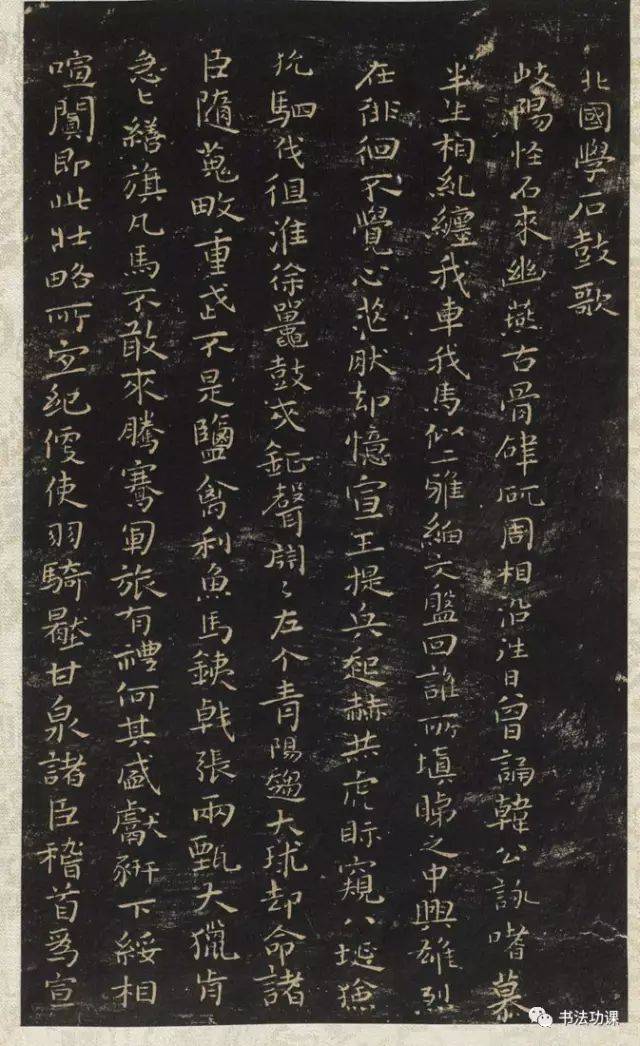 北國學石鼓歌
岐陽怪石來幽燕古骨硉矹周相沿往日曾誦韓公詠嗜慕
半生相糺纏我車我馬似二雅緬文盤回誰所塡睇之中興雄烈
在徘徊不覺心却憶宣王提兵起赫共虎眎窺八埏獫
狁駟伐徂淮徐鼉鼓戈鉦聲闐〻左个青陽大球却命諸
臣隨蒐畋重武不是鹽禽利魚馬鉄戟張兩甄大獵肯
急〻繕旗凡馬不敢來騰騫軍旅有禮何其盛獻豜下綏相
喧闐即此壯略所宜紀使羽騎甘泉諸臣稽首爲宣
书法功课